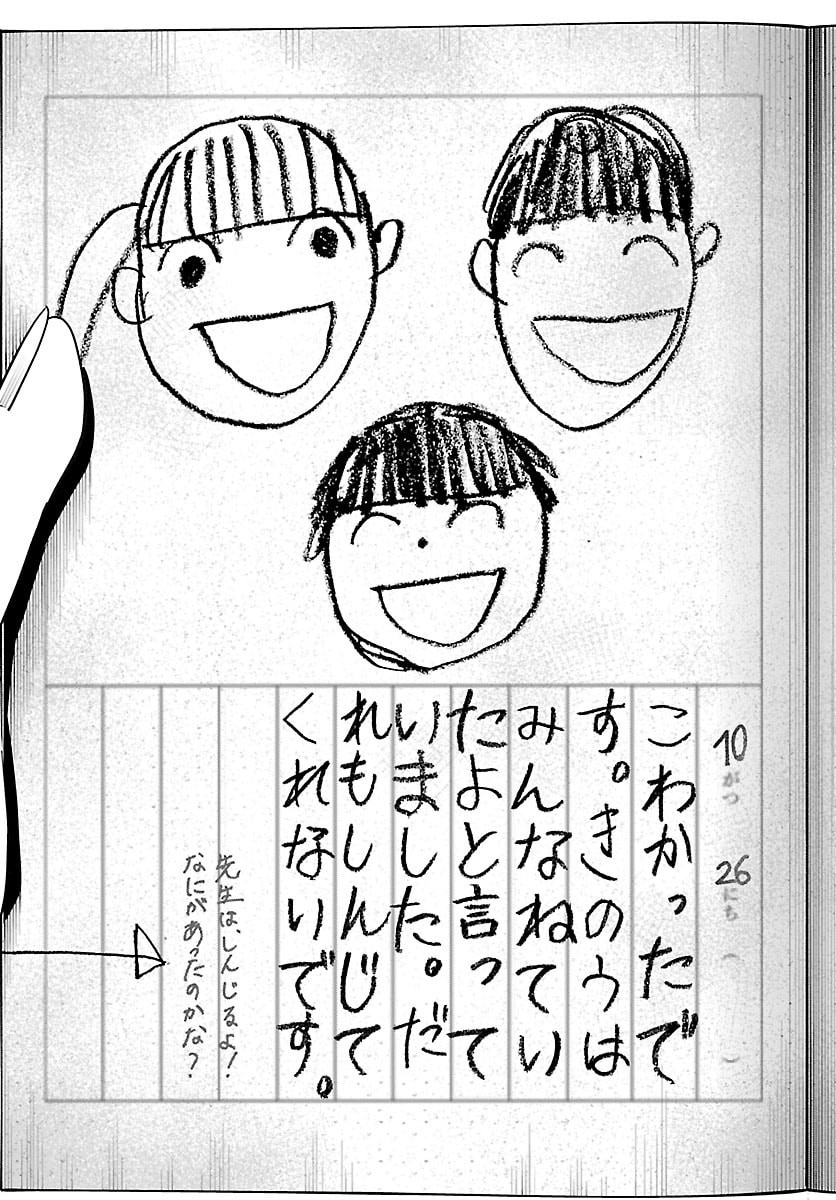 10がつ 26にち ( )
こわかったで
す。きのうは
みんなねてい
たよと言って
いました。だ
れもしんじて
くれないです。
先生は、しんじるよ!
なにがあったのかな?